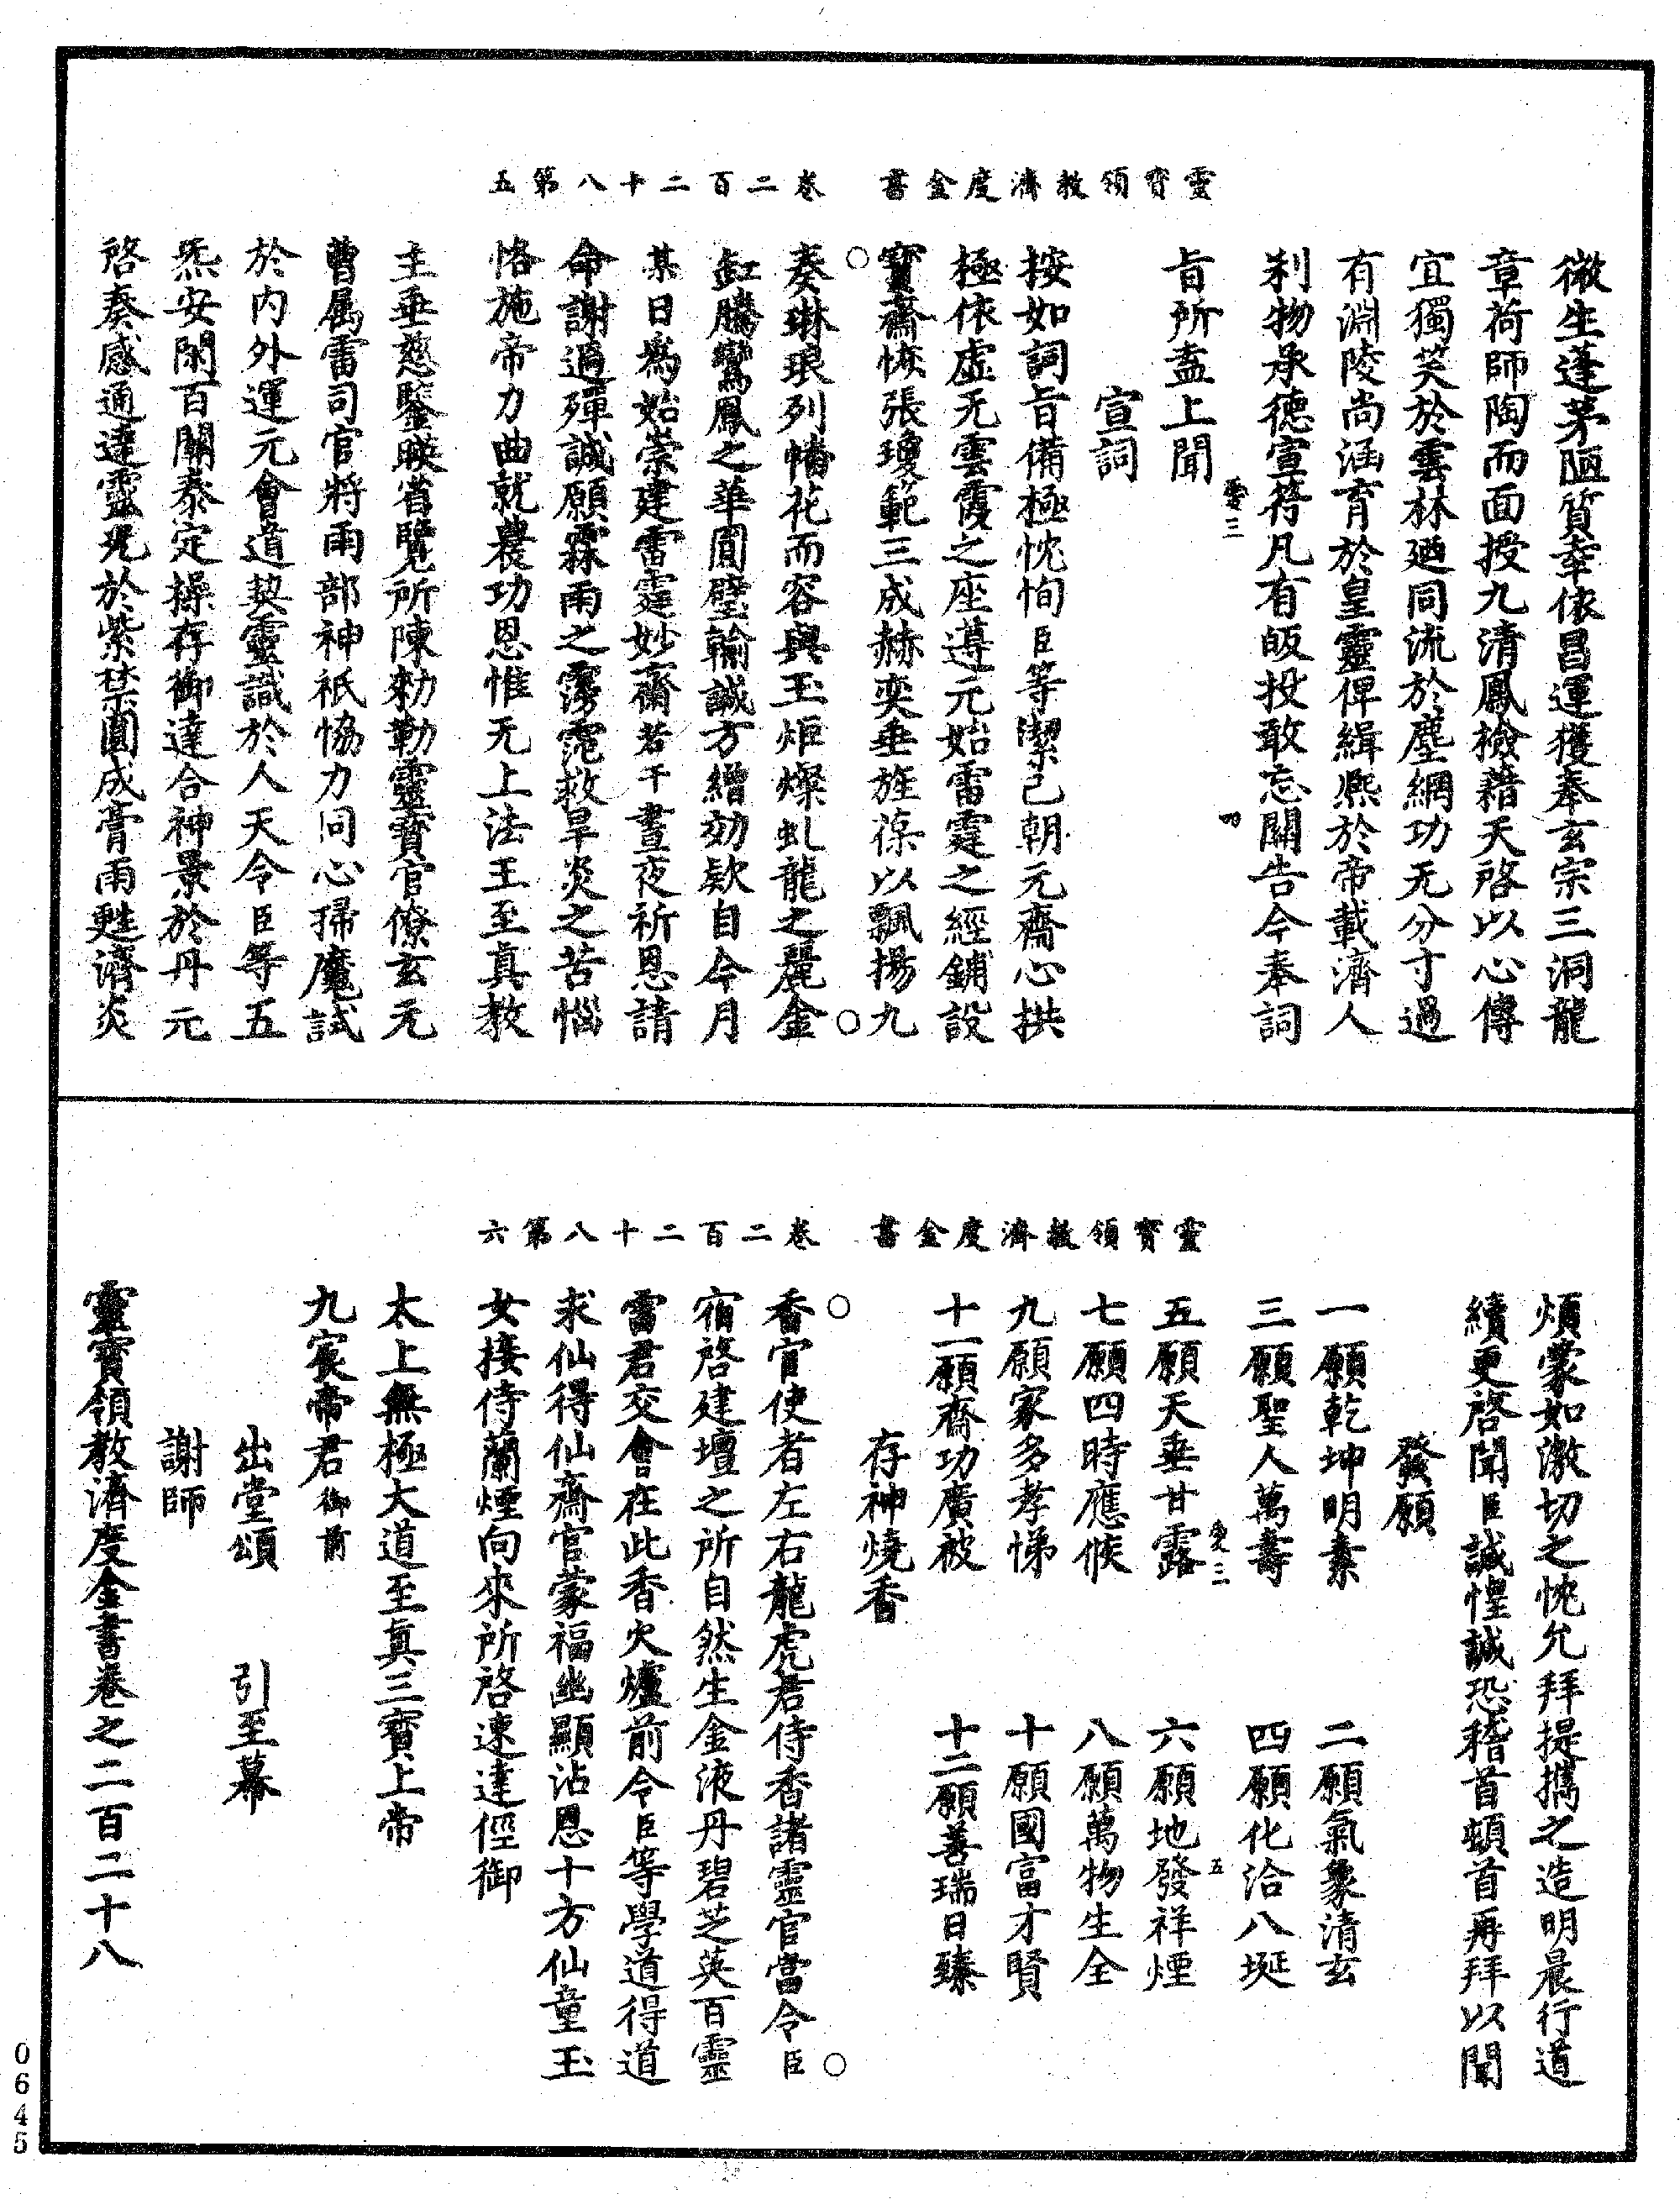 靈寶領教濟度金書　卷二百二十八第五
微生蓬茅陋質幸依昌運獲奉玄宗三洞龍
章荷師陶而面授九清鳳檢藉天啓以心傳
宜獨笑於雲林廼同流於塵網功无分寸過
有淵陵尚涵育於皇靈俾緝熈於帝載濟人
利物承德宣符凡有皈投敢忘關告今奉詞
旨所盍上聞
宣詞
按如詞旨備極忱恂臣等潔己朝元齋心拱
極依虛无雲霞之座遵元始雷霆之經鋪設
寶齋恢張瓊範三成赫奕垂旌葆以飄揚九
奏琳琅列幡花而容與玉炬燦虬龍之麗金
缸騰鸞鳳之華圓璧輸誠方繒効欵自今月
某日爲始崇建雷霆妙齋若干晝夜祈恩請
命謝過殫誠願霖雨之霶霈救旱炎之苦惱
恪施帝力曲就農功恩惟无上法王至真教
主垂慈鑒暎省覽所陳勑勒靈寶官僚玄元
曹属雷司官將雨部神祇恊力同心掃魔試
於内外運元會道契靈識於人天令臣等五
炁安閑百關泰定操存御達合神景於丹元
啓奏感通達靈現於紫禁圓成膏雨甦濟炎
靈寶領教濟度金書　卷二百二十八第六
煩蒙如激切之忱允拜提撝之造明晨行道
續更啓聞臣誠惶誠恐稽首頓首再拜以聞
發願
一願乾坤明素　二願氣象清玄
三願聖人萬壽　四願化洽八埏
五願天垂甘露　六願地發祥煙
七願四時應候　八願萬物生全
九願家多孝悌　十願國富才賢
十一願齋功廣被　十二願善瑞日臻
存神燒香
香官使者左右龍虎君侍香諸靈官當令臣
宿啓建壇之所自然生金液丹碧芝英百靈
雷君交會在此香火爐前令臣等學道得道
求仙得仙齋官蒙福幽顯沾恩十方仙童玉
女接侍蘭煙向來所啓速達徑御
太上無極大道至真三寶上帝
九宸帝君御前
出堂頌　引至幕
謝師
靈寶領教濟度金書卷之二百二十八
0645